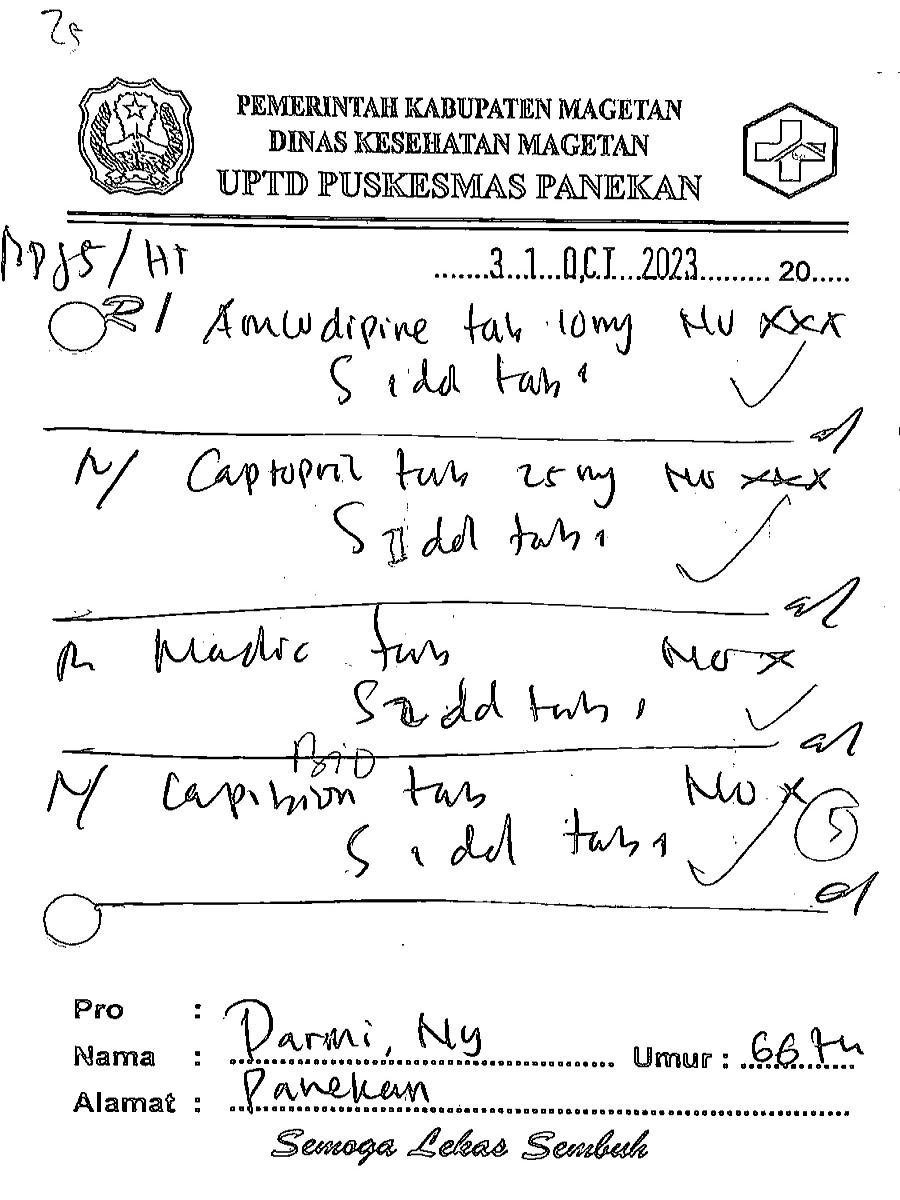 PEMERINTAH KABUPATEN MAGETAN
DINAS KESEHATAN MAGETAN
UPTD PUSKESMAS PANEKAN
BPJS / HT
31 OCT 2023 20.....
R/ Amlodipine tab 10 mg No XXX
S 1 dd tab 1
R/ Captopril tab 25 mg No XXX
S II dd tab 1
tab No X
S 2 dd tab 1
tab No X 5
S 1 dd tab 1
Pro :
Nama : Darmi, Ny Umur : 66 th
Alamat : Panekan
Semoga Lekas Sembuh